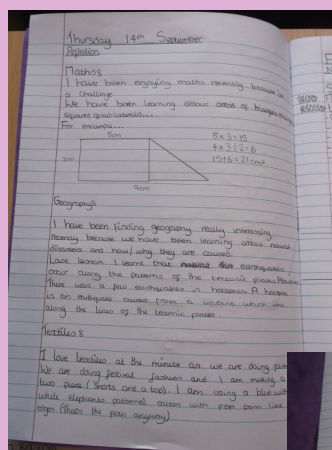 Thursday 14th September
Reflection
Maths:
I have been enjoying maths recently because
a challenge.
We have been learning about areas of triangles
For example...
5cm
5 x 3 = 15
4 x 3 ÷ 2 = 6
15 + 6 = 21cm²
3cm
9cm
Geography:
I have been finding geography really interesting
recently because we have been learning about natural
disasters and how/why they are caused.
Last lesson I learnt that earthquakes
occur along the patterns of the tectonic plates.
There was a few earthquakes in hotspots. A hotspot
is an earthquake caused from a volcano which
along the lines of the tectonic plates.
Textiles:
I love textiles at the minute as we are doing
We are doing festival fashion and I am making a
two piece (shorts and a top). I am using a blue with
white elephants patterned cotton with pom pom like
edges. (Thats the plan anyway)